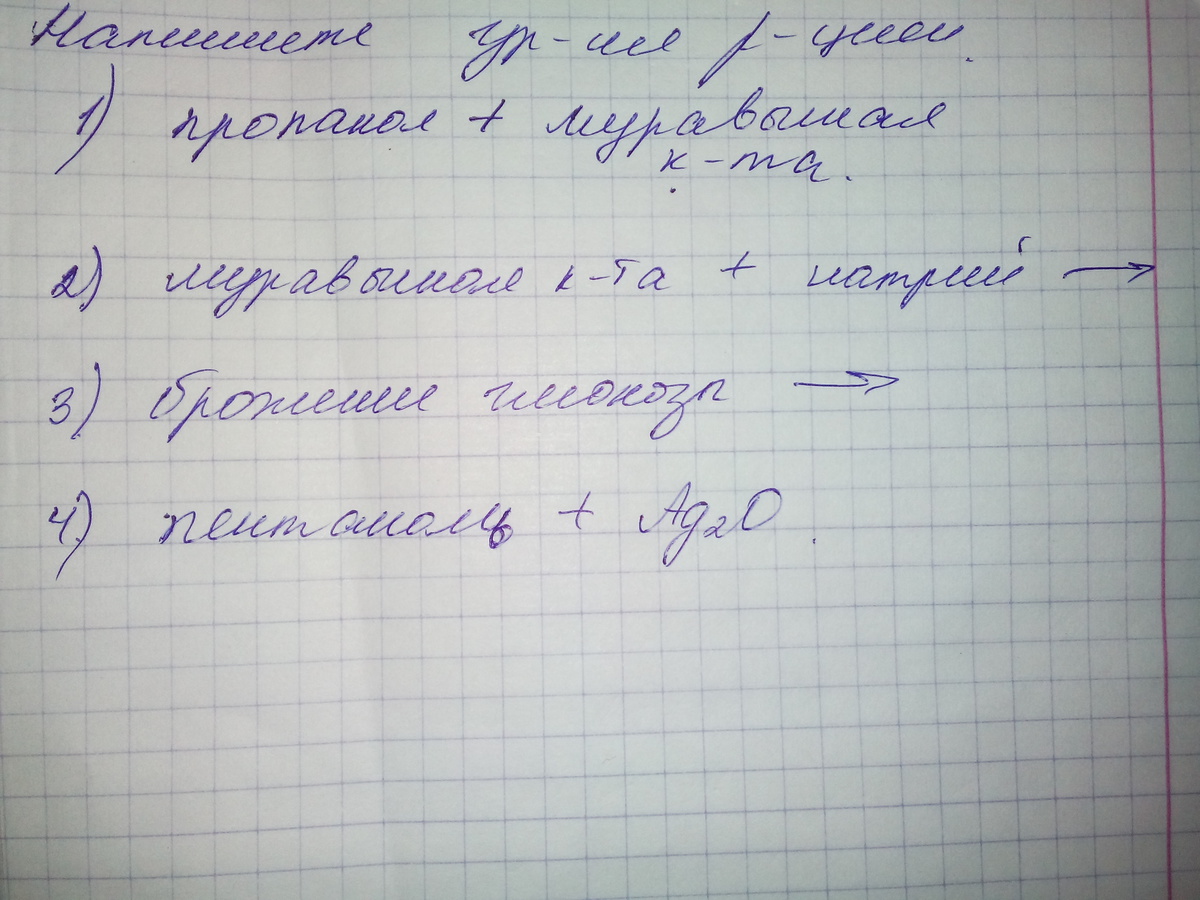 Напишите ур-ия р-ций.
1) пропанол + муравьиная
к-та.
2) муравьиная к-та + натрий →
3) брожение глюкозы →
4) пентаналь + Ag₂O.